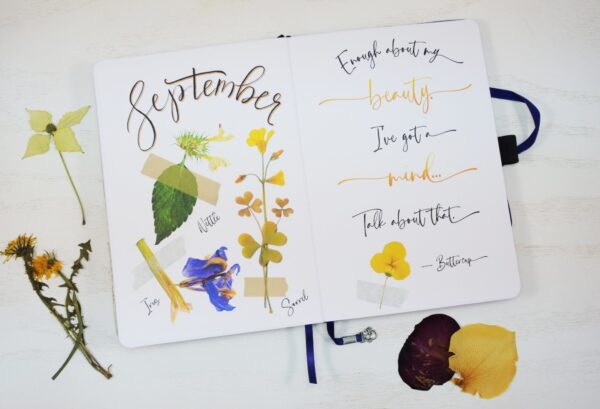 September
Nettle
Iris
Sorrel
Enough about my
beauty.
I've got a
mind...
Talk about that.
— Buttercup